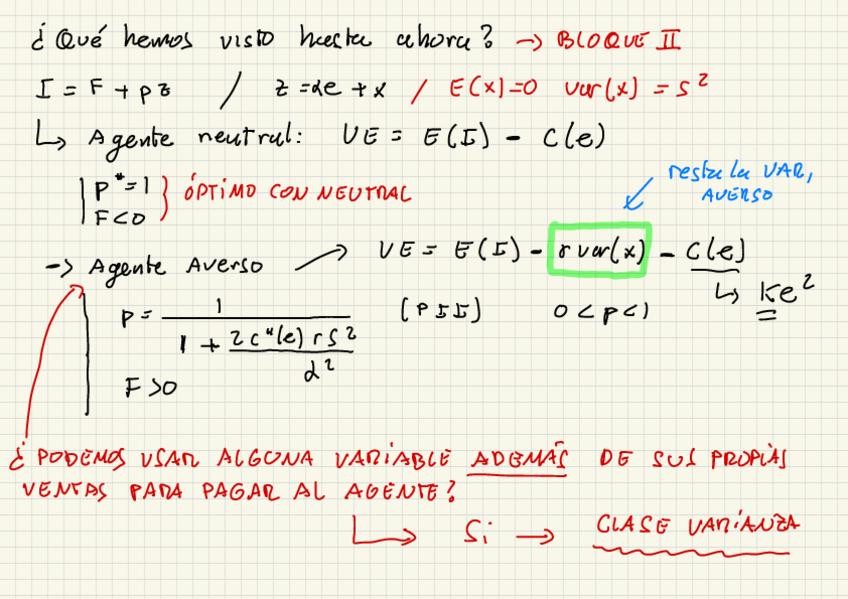 ¿Qué hemos visto hasta ahora? → BLOQUE II
I = F + pz / z = αe + x / E(x)=0 var(x) = s²
↳ Agente neutral: VE = E(I) - C(e)
P*=1
F<0
ÓPTIMO CON NEUTRAL
resta la VAR,
AVERSO
→ Agente Averso → VE = E(I) - r var(x) - C(e)
↳ Ke²
P = 1 / (1 + 2c"(e) r s² / α²) (PII) 0 < p < 1
F > 0
¿PODEMOS USAR ALGUNA VARIABLE ADEMÁS DE SUS PROPIAS
VENTAS PARA PAGAR AL AGENTE?
↳ Si → CLASE VARIANZA